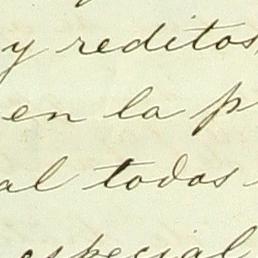 y reditos,
en la p
al todos
especial